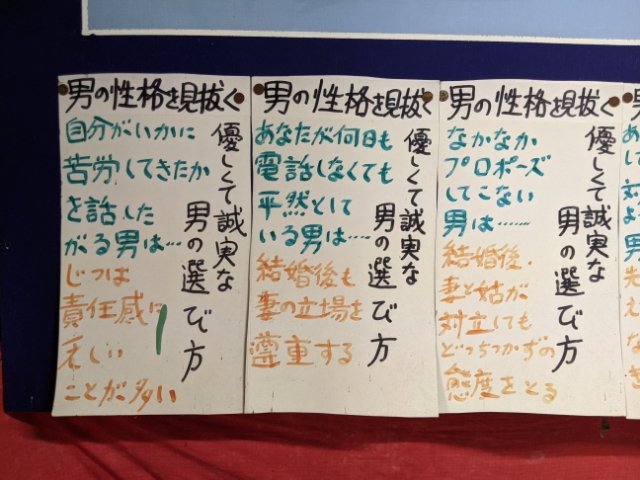 男の性格を見抜く
優しくて誠実な
男の選び方
自分がいかに
苦労してきたか
を話した
がる男は…
じつは
責任感に
乏しい
ことが多い
男の性格を見抜く
優しくて誠実な
男の選び方
あなたが何日も
電話しなくても
平然として
いる男は…
結婚後も
妻の立場を
尊重する
男の性格を見抜く
優しくて誠実な
男の選び方
なかなか
プロポーズ
してこない
男は……
結婚後、
妻と姑が
対立しても
どっちつかずの
態度をとる